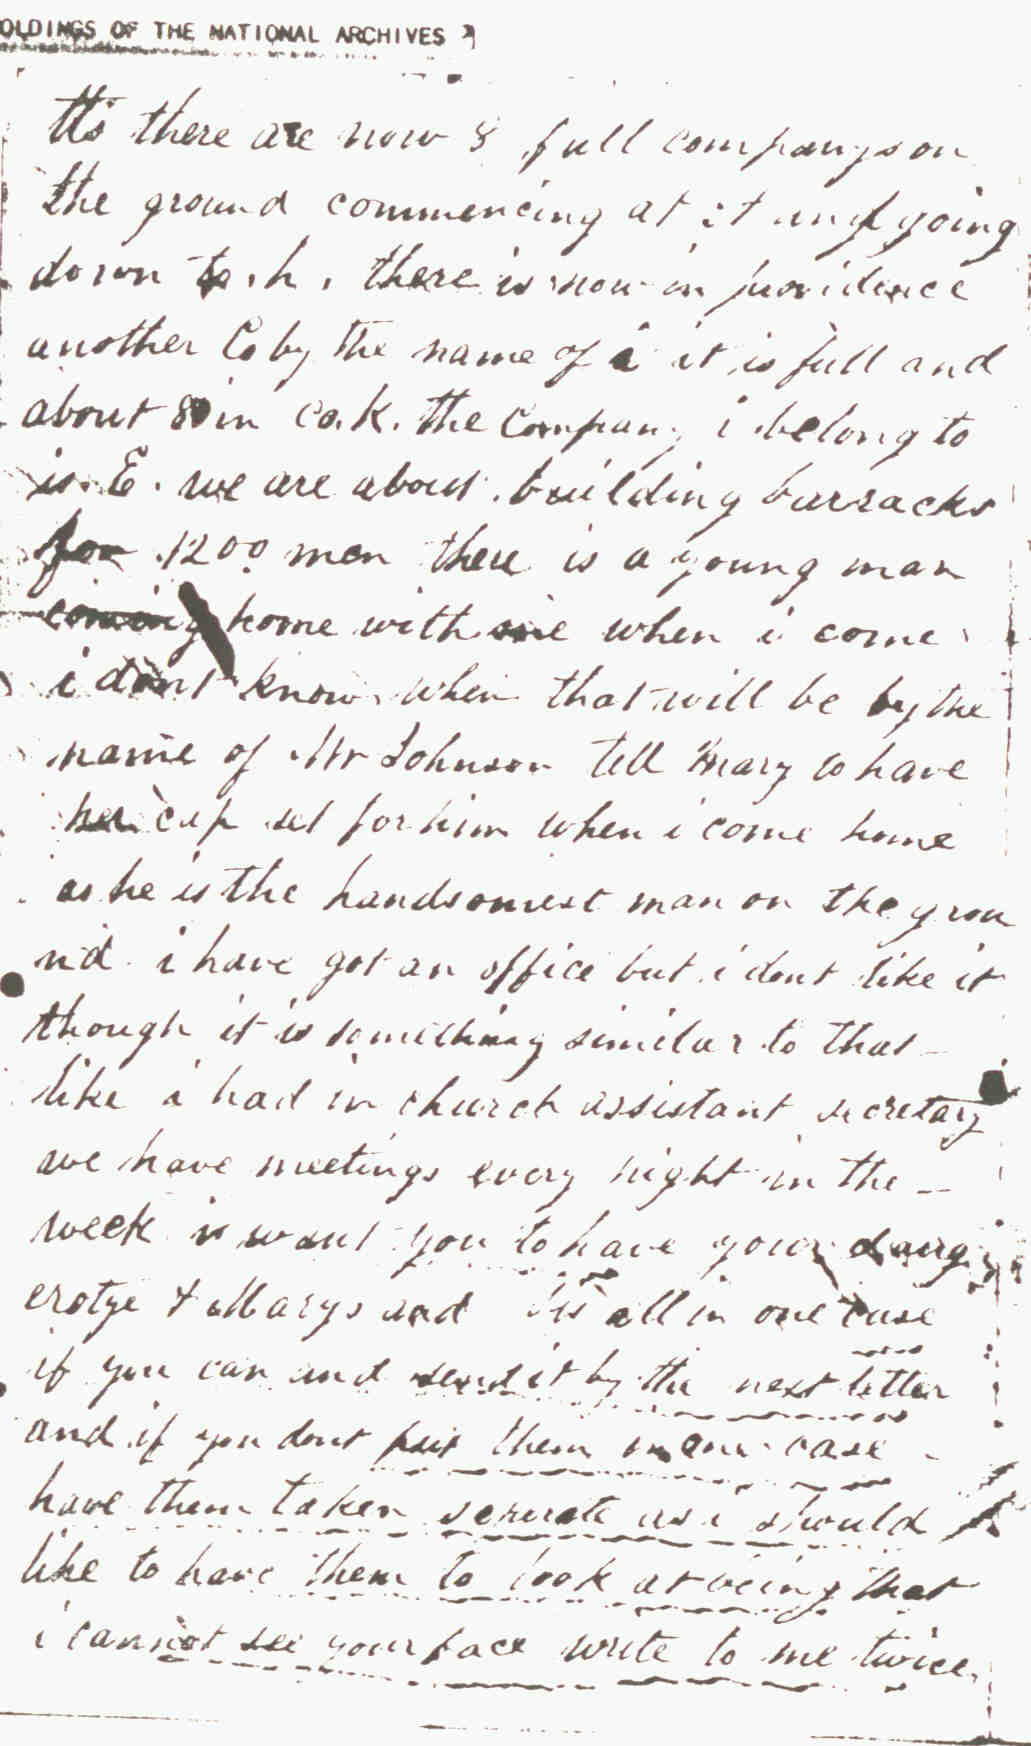 OLDINGS OF THE NATIONAL ARCHIVES
there are now 8 full companys on
the ground commencing at and going
down to h. there is now in providence
another Co by the name of i it is full and
about 80 in Co. K. The Company i belong to
is E. we are about building barracks
for 1200 men there is a young man
coming home with me when i come
i dont know when that will be by the
name of Mr Johnson tell mary to have
her cap set for him when i come home
as he is the handsomest man on the grou
nd i have got an office but i dont like it
though it is something similar to that
like i had in church assistant secretary
we have meetings every night in the
week i want you to have your daug
erotye & Marys and all in one case
if you can and send it by the next letter
and if you dont put them in one case
have them taken seperate as i should
like to have them to look at being that
i cannot see your face write to me twice